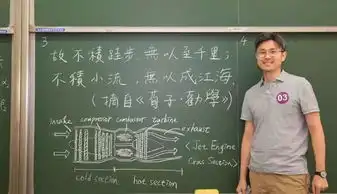 3
4
故不積跬步,無以至千里;
不積小流,無以成江海。
(摘自《荀子·勸學》)
intake compressor combustor turbine
exhaust
<Jet Engine
Cross Section>
cold section hot section
03